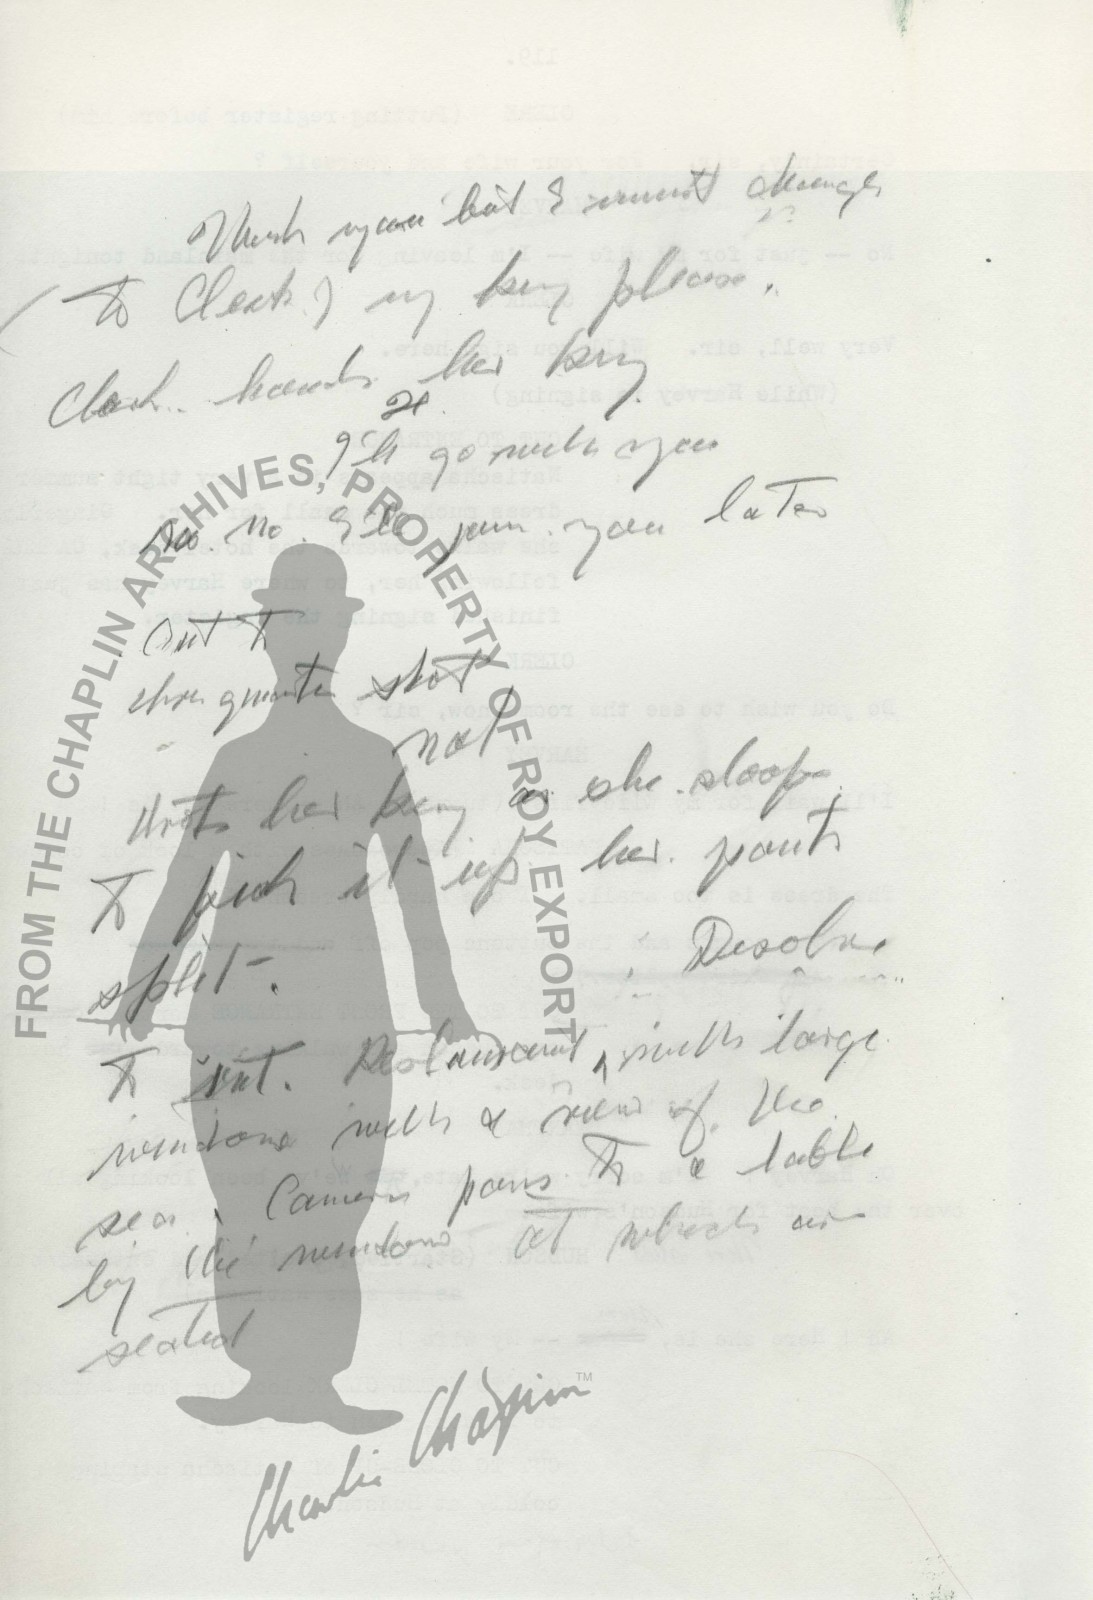 Thank you but I must change
(To Clerk) my key please.
Clerk hands her key
H.
I'll go with you
N.
No. No. I'll join you later
Cut to
three quarter shot
Nat
drops her key as she stoops
to pick it up her pants
split.
Desolve
To int. Restaurant, with large
window with a view of the
sea. Camera pans to a table
by the window at which are
seated
FROM THE CHAPLIN ARCHIVES, PROPERTY OF ROY EXPORT
Charlie Chaplin™